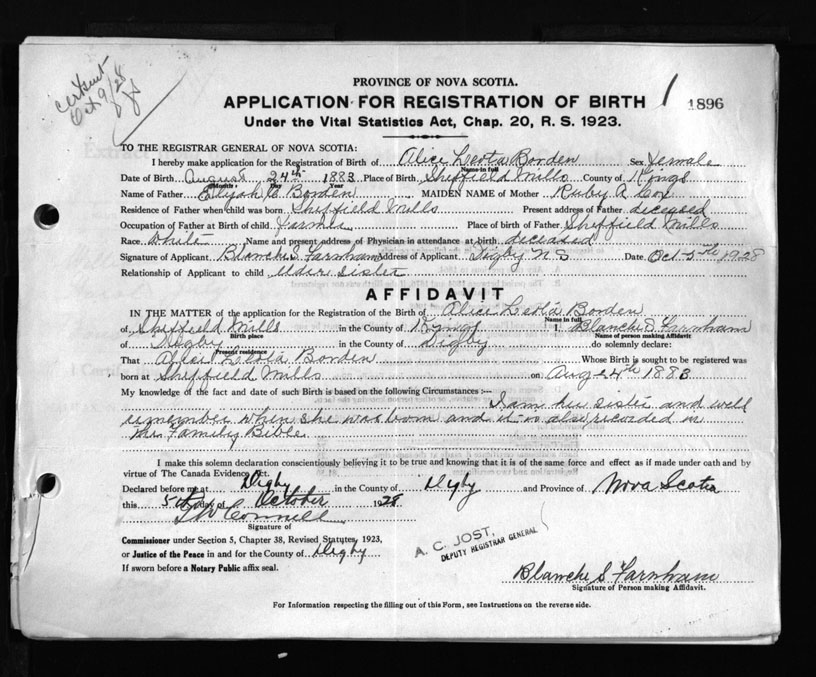 Cert sent
Oct 9/28
PROVINCE OF NOVA SCOTIA.
APPLICATION FOR REGISTRATION OF BIRTH 1 1896
Under the Vital Statistics Act, Chap. 20, R. S. 1923.
TO THE REGISTRAR GENERAL OF NOVA SCOTIA:
I hereby make application for the Registration of Birth of Alice Leota Borden Sex Female
Name in full
Date of Birth August 24th 1883 Place of Birth Sheffield Mills County of Kings
Month Day Year
Name of Father Elijah C Borden MAIDEN NAME of Mother Ruby A Cox
Residence of Father when child was born Sheffield Mills Present address of Father deceased
Occupation of Father at Birth of child Farmer Place of birth of Father Sheffield Mills
Race White Name and present address of Physician in attendance at birth deceased
Signature of Applicant Blanche S. Farnham Address of Applicant Digby N S Date Oct 5th 1928
Relationship of Applicant to child Elder Sister
AFFIDAVIT
IN THE MATTER of the application for the Registration of the Birth of Alice Leota Borden
Name in full
of Sheffield Mills in the County of Kings I, Blanche S Farnham
Birth place Name of person making Affidavit
of Digby in the County of Digby do solemnly declare:
Present residence
That Alice Leota Borden Whose Birth is sought to be registered was
born at Sheffield Mills on Aug 24th 1883
My knowledge of the fact and date of such Birth is based on the following Circumstances :—
I am her sister and well
remember when she was born and it is also recorded in
the Family Bible
I make this solemn declaration conscientiously believing it to be true and knowing that it is of the same force and effect as if made under oath and by
virtue of The Canada Evidence Act.
Declared before me at Digby in the County of Digby and Province of Nova Scotia
this 5th day of October 1928
Signature of
Commissioner under Section 5, Chapter 38, Revised Statutes, 1923,
or Justice of the Peace in and for the County of Digby
If sworn before a Notary Public affix seal.
A. C. JOST,
DEPUTY REGISTRAR GENERAL
Blanche S Farnham
Signature of Person making Affidavit.
For Information respecting the filling out of this Form, see Instructions on the reverse side.